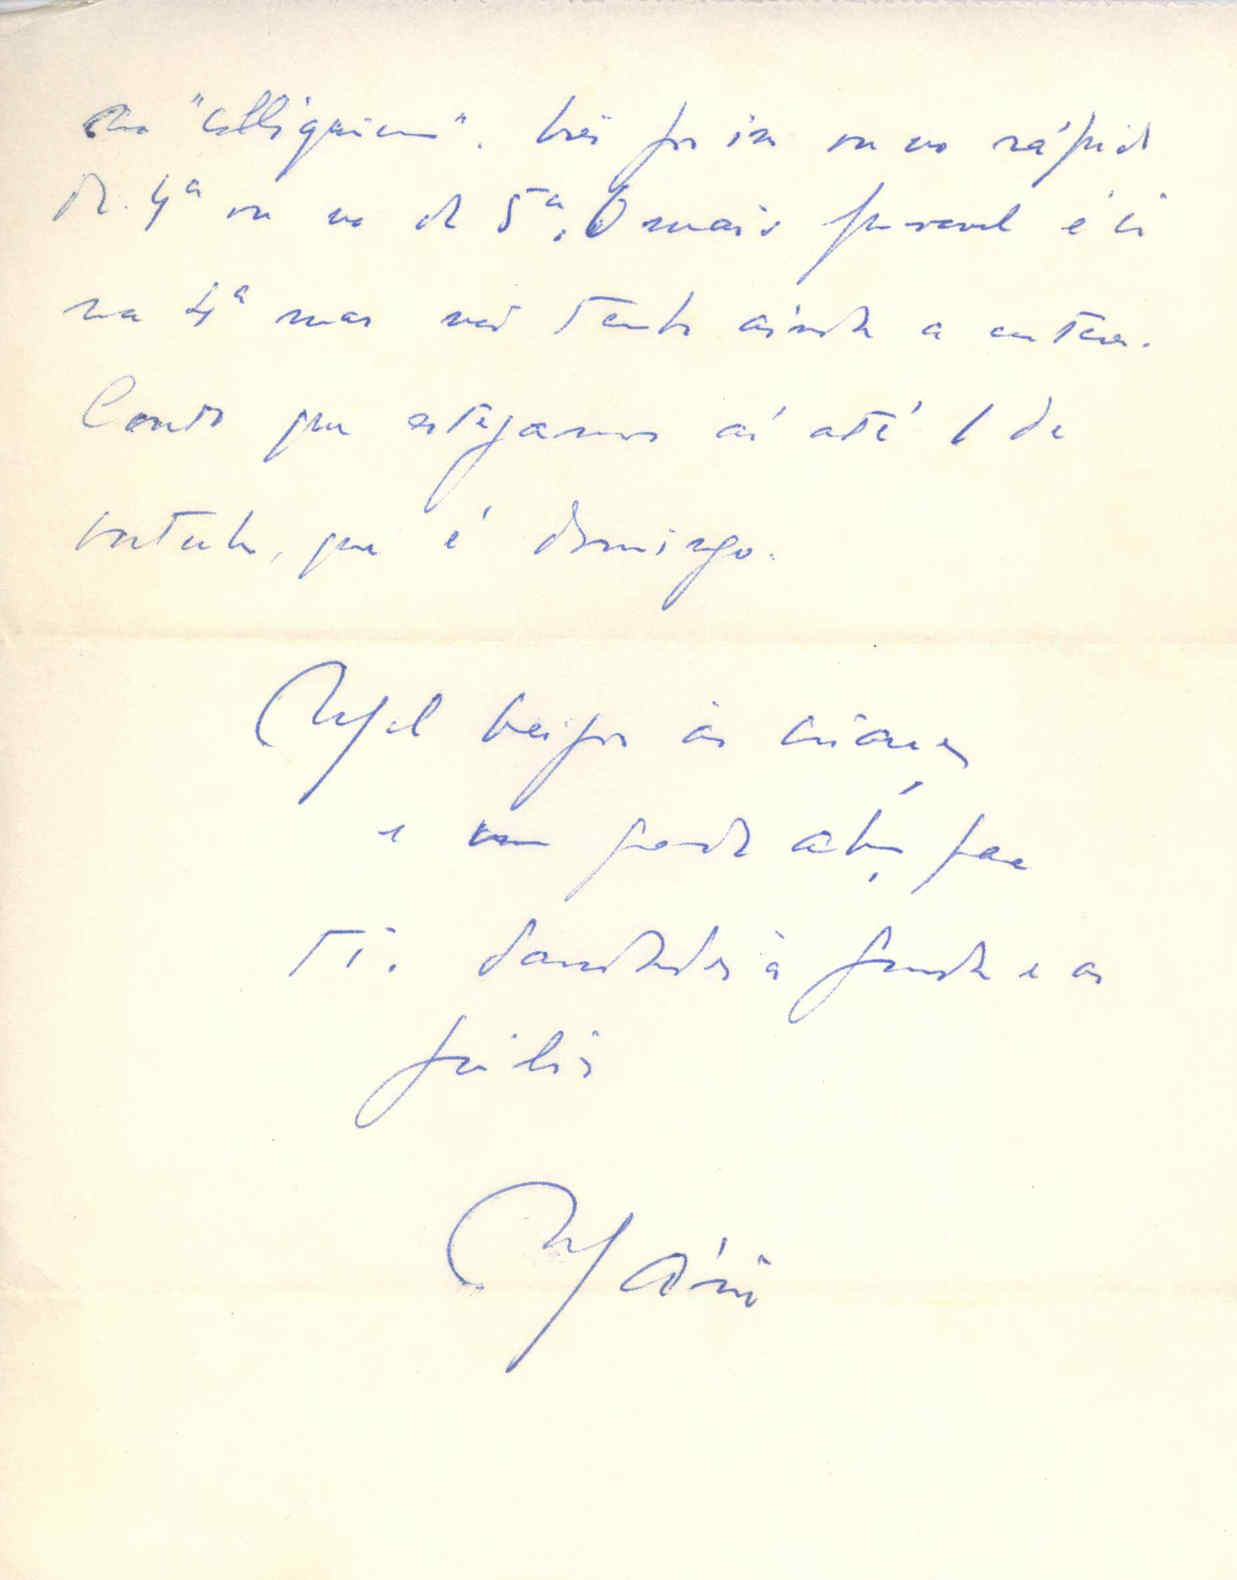 no "colloquium". Irei por isso ou no rápido
da 4ª ou no da 5ª. O mais provavel é ir
na 4ª mas não tenho ainda a certeza.
Conto que estejamos aí até 1 de
que é domingo.
Mil beijos às crianças
e um grande abraço para
ti. Saudades à e ao
Júlio
Mário